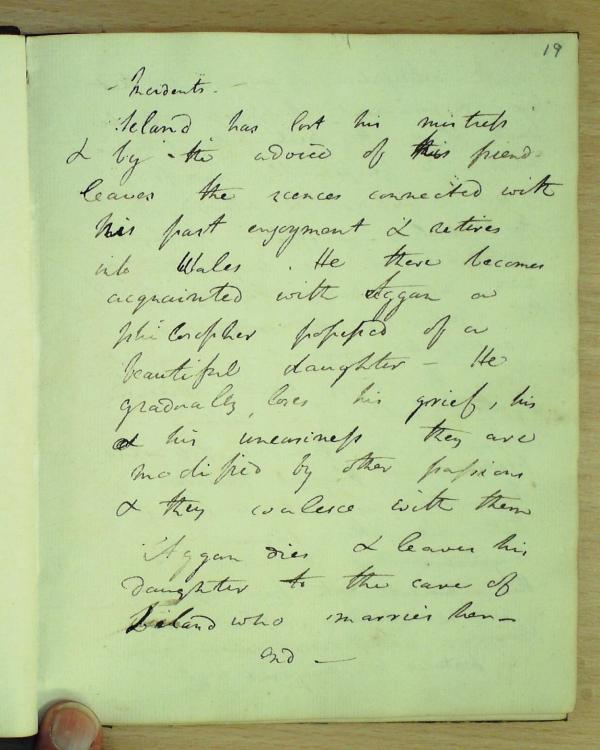 19
Incidents.
Ieland has lost his mistress
& by the advice of this friend
leaves the scences connected with
his past enjoyment & retires
into Wales. He there becomes
acquainted with Aggan a
philosopher possessed of a
beautiful daughter – He
gradually loses his grief, his
& his uneasiness they are
modified by other passions
& they coalesce with them
Aggan dies & leaves his
daughter to the care of
Ieland who marries her –
End –